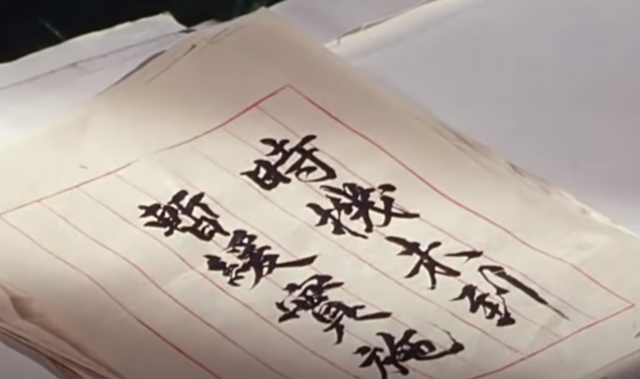 時機未到
暫緩實施